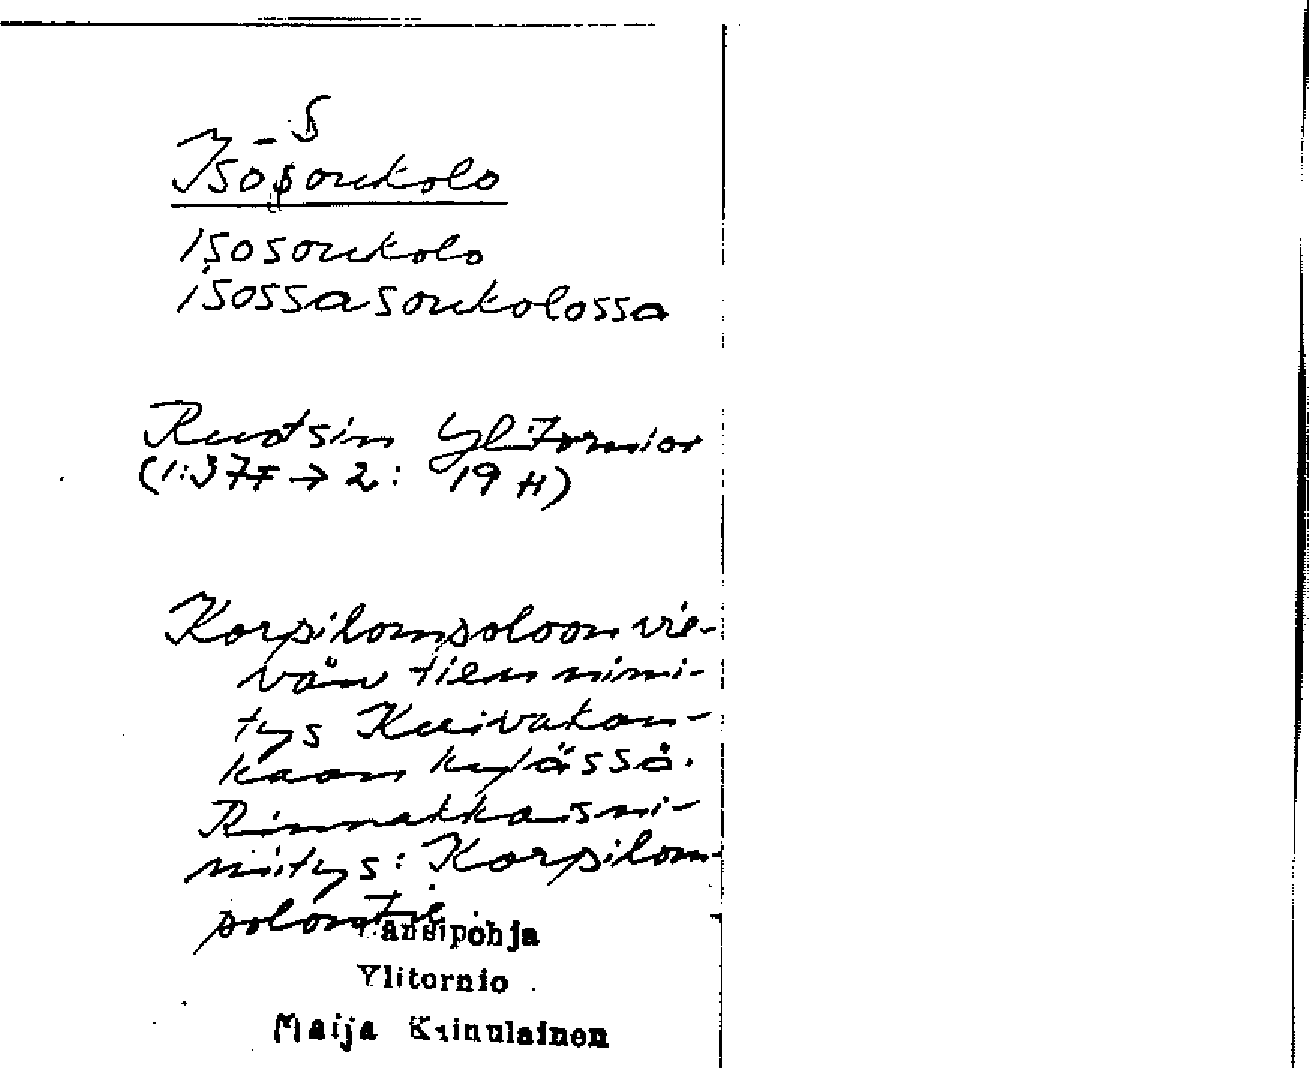 - S
Isosoukolo
isosoukolo
isossasoukolossa
Ruotsin Ylitornior
(1:37F → 2: 19 H)
Korpilompoloon vie-
vän tien nimi-
tys Kuivakan-
kaan kylässä.
Rinnakkaisni-
mitys: Korpilom-
polontie
Länsipohja
Ylitornio
Maija Kiinulainen